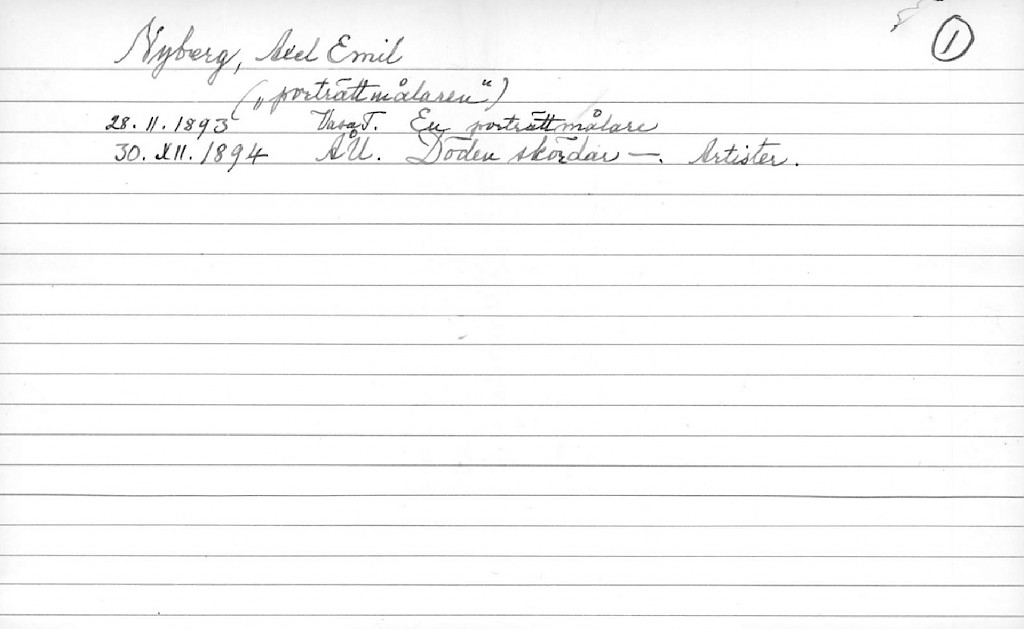 Nyberg, Axel Emil
1
(„porträttmålaren“)
28. II. 1893 VasaT. En porträttmålare
30. XII. 1894 ÅU. Döden skördar —. Artister.